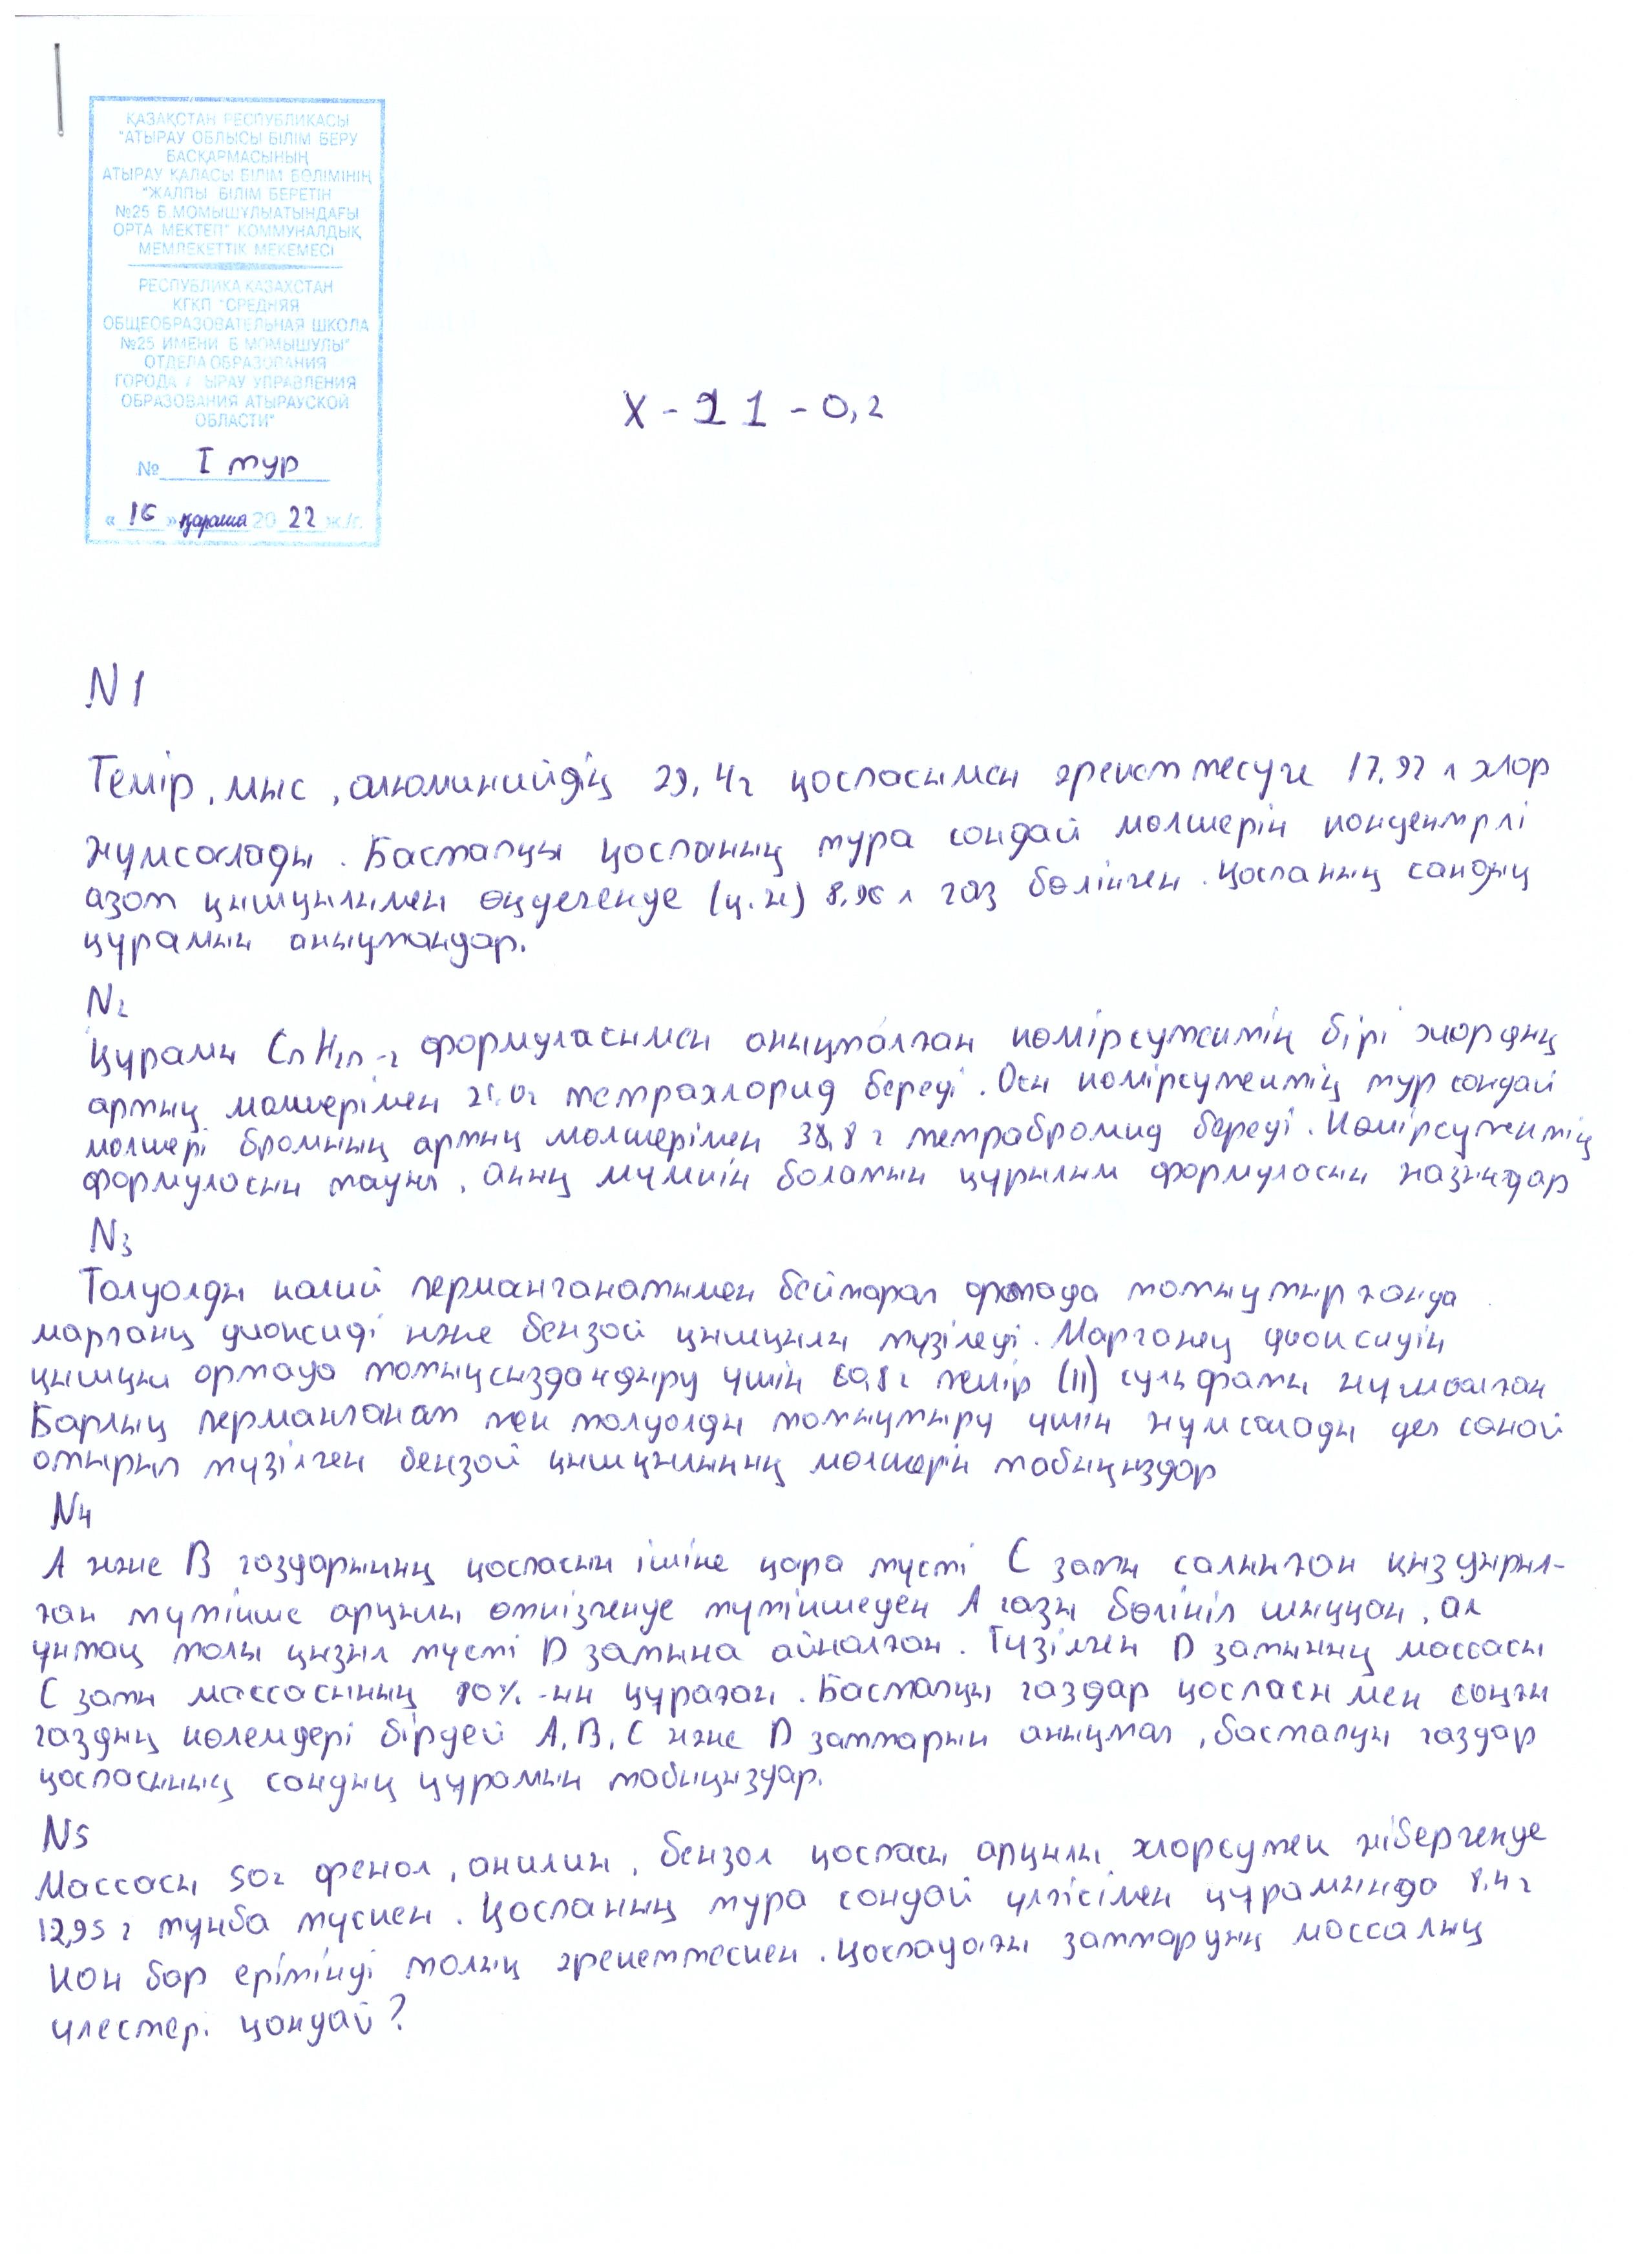 ҚАЗАҚСТАН РЕСПУБЛИКАСЫ
"АТЫРАУ ОБЛЫСЫ БІЛІМ БЕРУ
БАСҚАРМАСЫНЫҢ
АТЫРАУ ҚАЛАСЫ БІЛІМ БӨЛІМІНІҢ
"ЖАЛПЫ БІЛІМ БЕРЕТІН
№25 Б.МОМЫШҰЛЫАТЫНДАҒЫ
ОРТА МЕКТЕП" КОММУНАЛДЫҚ
МЕМЛЕКЕТТІК МЕКЕМЕСІ
РЕСПУБЛИКА КАЗАХСТАН
КГКП "СРЕДНЯЯ
ОБЩЕОБРАЗОВАТЕЛЬНАЯ ШКОЛА
№25 ИМЕНИ Б МОМЫШУЛЫ"
ОТДЕЛА ОБРАЗОВАНИЯ
ГОРОДА ЫРАУ УПРАВЛЕНИЯ
ОБРАЗОВАНИЯ АТЫРАУСКОЙ
ОБЛАСТИ"
№ I тур
« 16 » қараша 20 22 ж./г.
Х - 11 - 0,2
N1
Темір, мыс, алюминийдің 29,4г қоспасымен әрекеттесуге 17,92 л хлор
жұмсалады. Бастапқы қоспаның тура сондай мөлшерін концентрлі
азот қышқылымен өңдегенде (қ.ж) 8,96 л газ бөлінген. Қоспаның сандық
құрамын анықтаңдар.
N2
Құрамы CnH2n-2 формуласымен анықталған көмірсутектің бірі хлордың
артық мөлшерімен 21.0г тетрахлорид береді. Осы көмірсутектің тур сондай
мөлшері бромның артық мөлшерімен 38,8 г тетрабромид береді. Көмірсутектің
формуласын тауып, оның мүмкін болатын құрылым формуласын жазыңдар
N3
Толуолды калий перманганатымен бейтарап ортада тотықтырғанда
марганц диоксиді және бензой қышқылы түзіледі. Марганец диоксидін
қышқыл ортада тотықсыздандыру үшін 60,8г темір (II) сульфаты жұмсалған
Барлық перманганат пен толуолды тотықтыру үшін жұмсалады деп санай
отырып түзілген бензой қышқылының мөлшерін табыңыздар
N4
А және В газдарының қоспасын ішіне қара түсті С заты салынған қыздырыл-
ған түтікше арқылы өткізгенде түтікшеден А газы бөлініп шыққан, ал
ұнтақ толы қызыл түсті D затына айналған. Түзілген D затының массасы
С заты массасының 80% -ын құраған. Бастапқы газдар қоспасы мен соңғы
газдың көлемдері бірдей А, В, С және D заттарын анықтап, бастапқы газдар
қоспасының сандық құрамын табыңыздар.
N5
Массасы 50г фенол, анилин, бензол қоспасы арқылы хлорсутек жібергенде
12,95 г тұнба түскен. Қоспаның тура сондай үлгісімен құрамында 8.4 г
КОН бар ерітінді толық әрекеттескен. Қоспадағы заттардың массалық
үлестері қандай?